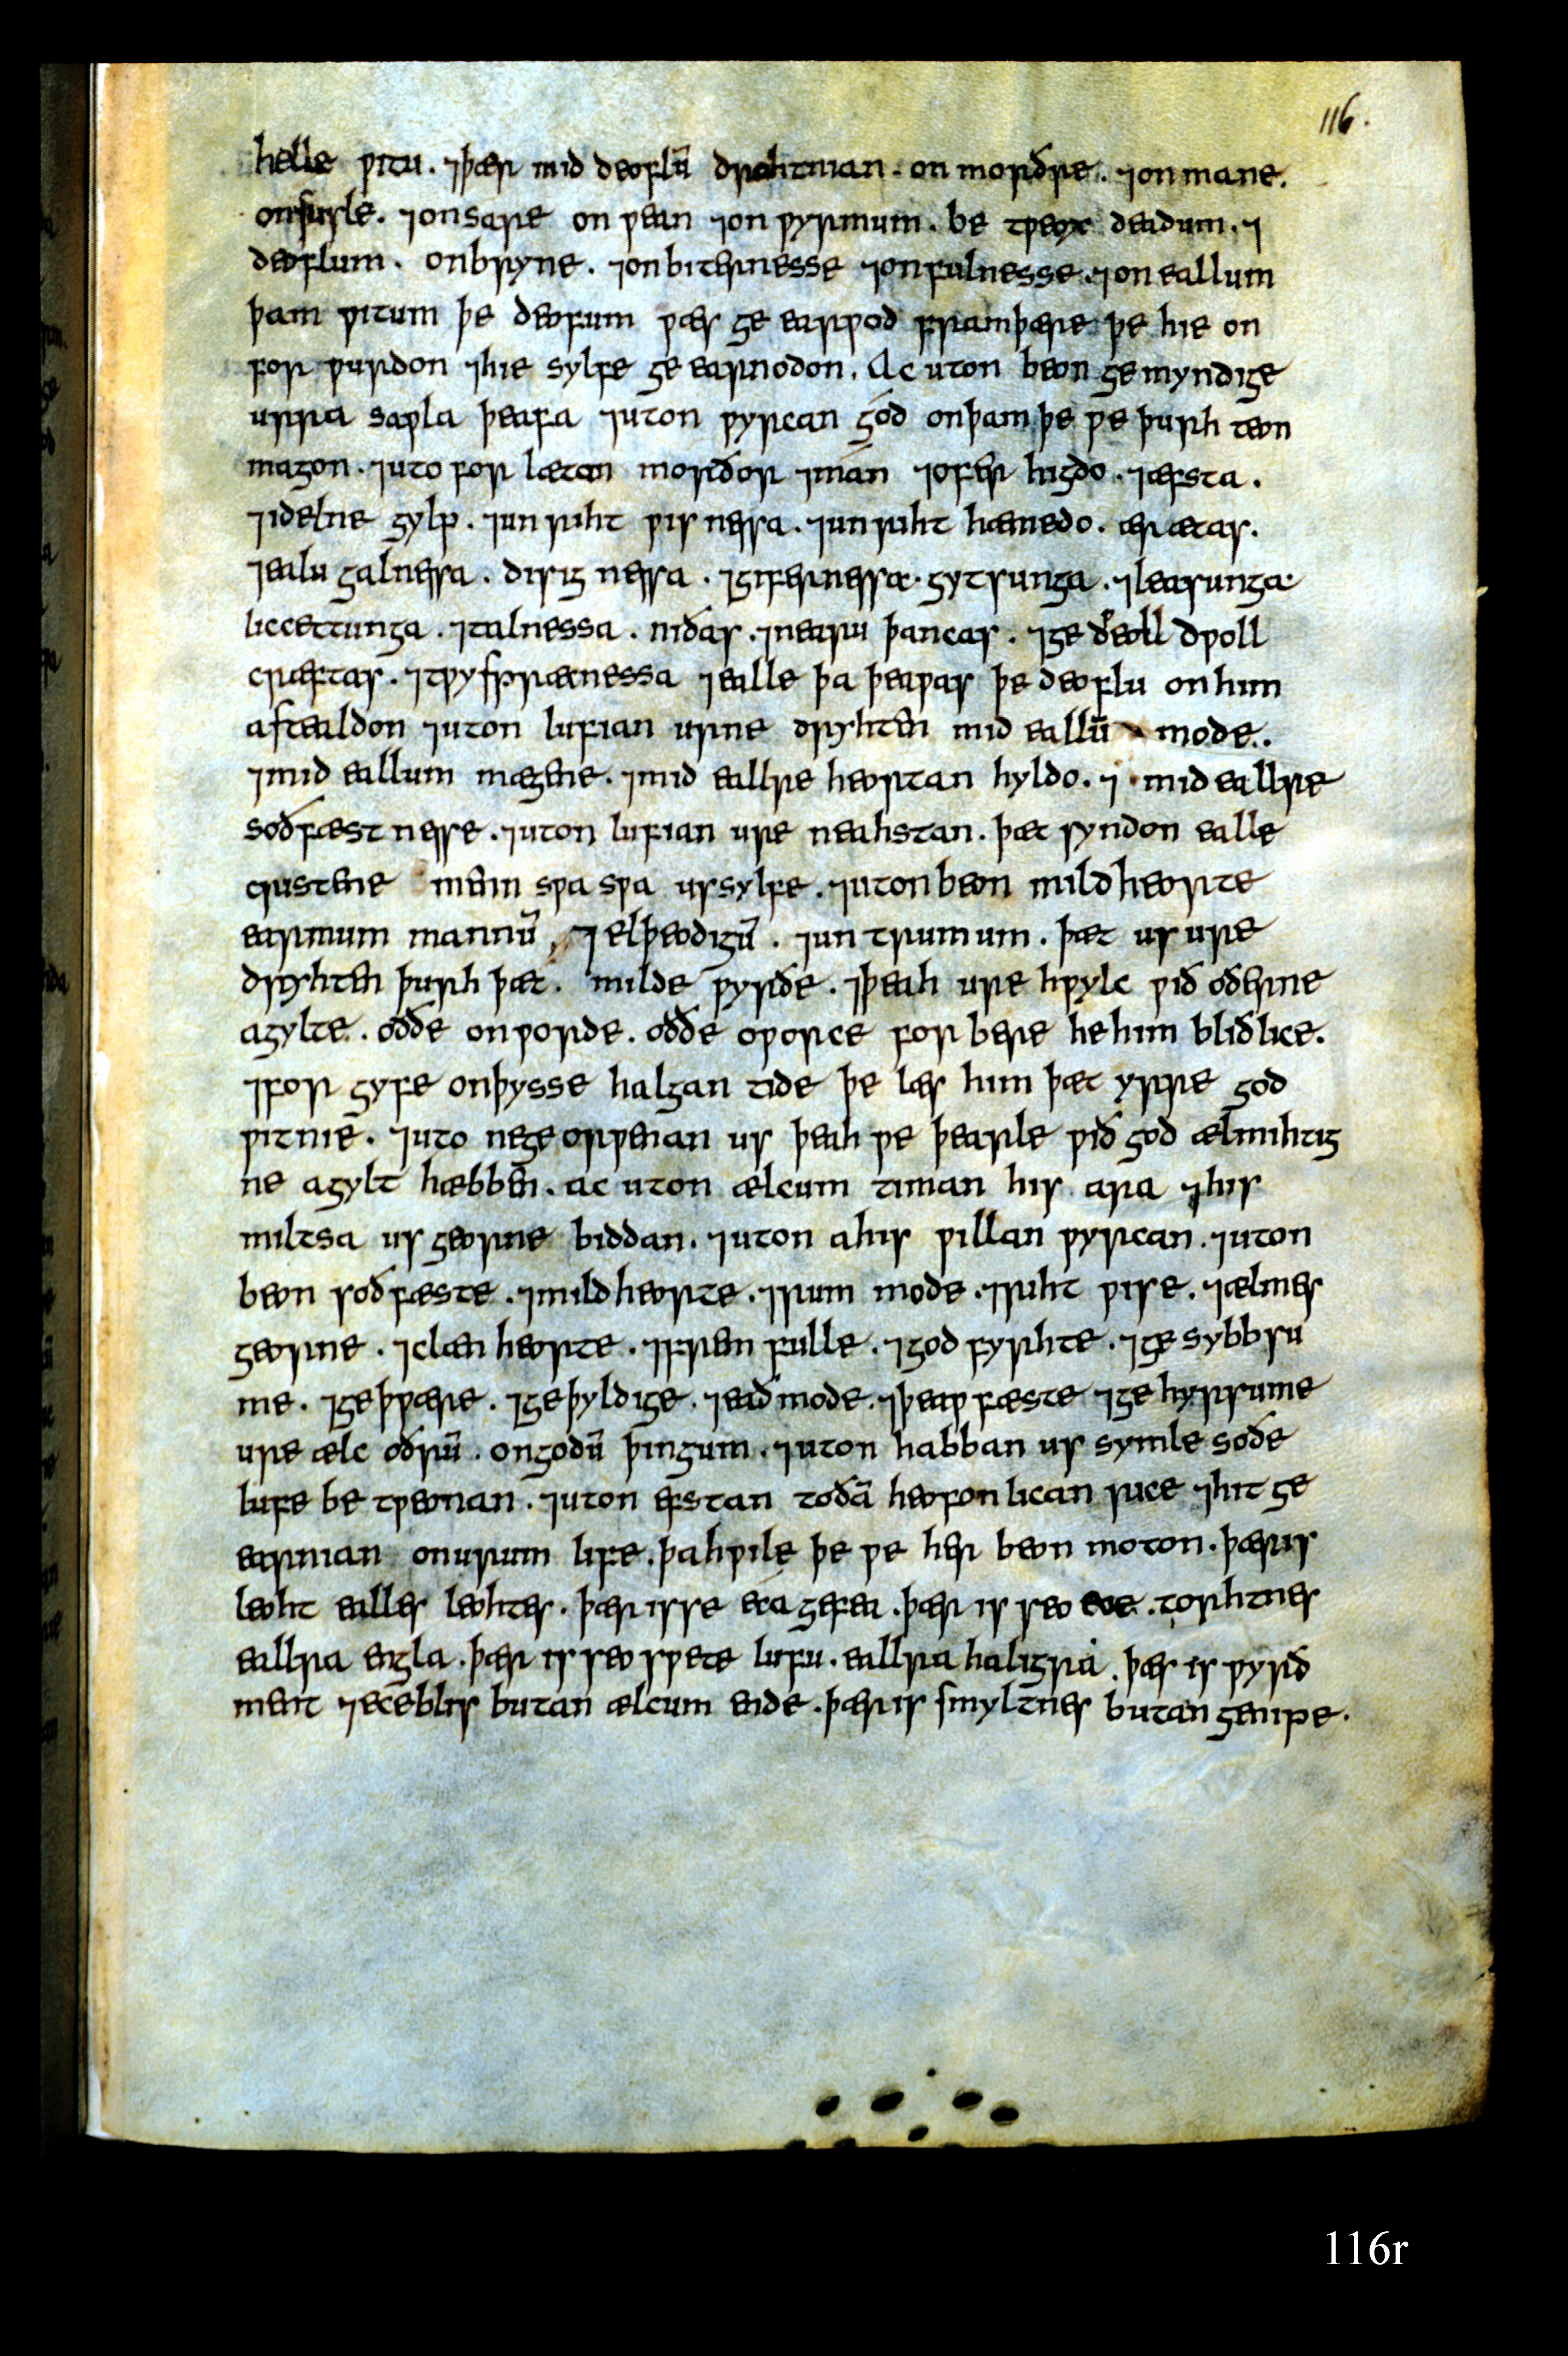 116.
helle ƿitu. ⁊þær mid deoflū drohtnian. on morðre. ⁊on mane.
onsusle. ⁊onsare on ƿean ⁊on ƿyrmum. be tƿeox deadum. ⁊
deoflum. onbryne. ⁊onbiternesse ⁊onfulnesse. ⁊on eallum
þam ƿitum þe deofum ƿæs ge earƿod framþære þe hie on
for ƿurdon ⁊hie sylfe ge earnodon. Ac uton beon ge myndige
urra saƿla þearfa ⁊uton ƿyrcan gód onþam þe ƿe þurh teon
magon. ⁊uto for lætan morðor ⁊mán ⁊ofer higdo. ⁊æfsta.
⁊idelne gylp. ⁊un riht ƿis nessa. ⁊un riht hæmedo. ær ætas.
⁊ealu galnessa. disig nessa. ⁊gifernessæ. gytsunga. ⁊leasunga
liccettunga. ⁊talnessa. niðas. ⁊nearu þancas. ⁊ge dƿoll
cræftas. ⁊tƿyspræcnessa ⁊ealle þa þeaƿas þe deoflu on him
astealdon ⁊uton lufian urne dryhten mid eallū mode.
⁊mid eallum mægene. ⁊mid eallre heortan hyldo. ⁊ mid eallre
soðfæst nesse. ⁊uton lufian ure neahstan. þæt syndon ealle
cristene menn sƿa sƿa us sylfe. ⁊uton beon mild heorte
earmum mannū, ⁊ elþeodigū. ⁊un trumum. þæt us ure
dryhten þurh þæt. milde ƿyrðe. ⁊þeah ure hƿylc ƿið oðerne
agylte. oððe on ƿorde. oððe oƿorce for bere he him bliðlice.
⁊for gyfe onþysse halgan tide þe læs him þæt yrre god
ƿitnie. ⁊uto nege orƿenan us þeah ƿe þearle ƿið god ælmihtig
ne agylt hæbben. ac uton ælcum timan his ara ⁊his
miltsa us georne biddan. ⁊uton ahis ƿillan ƿyrcan. ⁊uton
beon soðfæste. ⁊mildheorte. ⁊rum mode. ⁊riht ƿise. ⁊ælmes
georne. ⁊clæn heorte. ⁊frem fulle. ⁊god fyrhte. ⁊ge sybbsu
me. ⁊geþƿære. ⁊geþyldige. ⁊eað mode. ⁊þeaƿ fæste ⁊ge hyrsume
ure ælc oðrū. ongodū þingum. ⁊uton habban us symle soðe
lufe be tƿeonan. ⁊uton efstan toðā heofonlican rice ⁊hit ge
earnian onurum life. þahƿile þe ƿe her beon moton. þæris
leoht ealles leohtes. þær isse eca gefea. þær is seo ece. torhtnes
eallra engla. þær is seo sƿete lufu. eallra haligra. þær is ƿyrð
ment ⁊eceblis butan ælcum ende. þæris smyltnes butan genipe.
116r